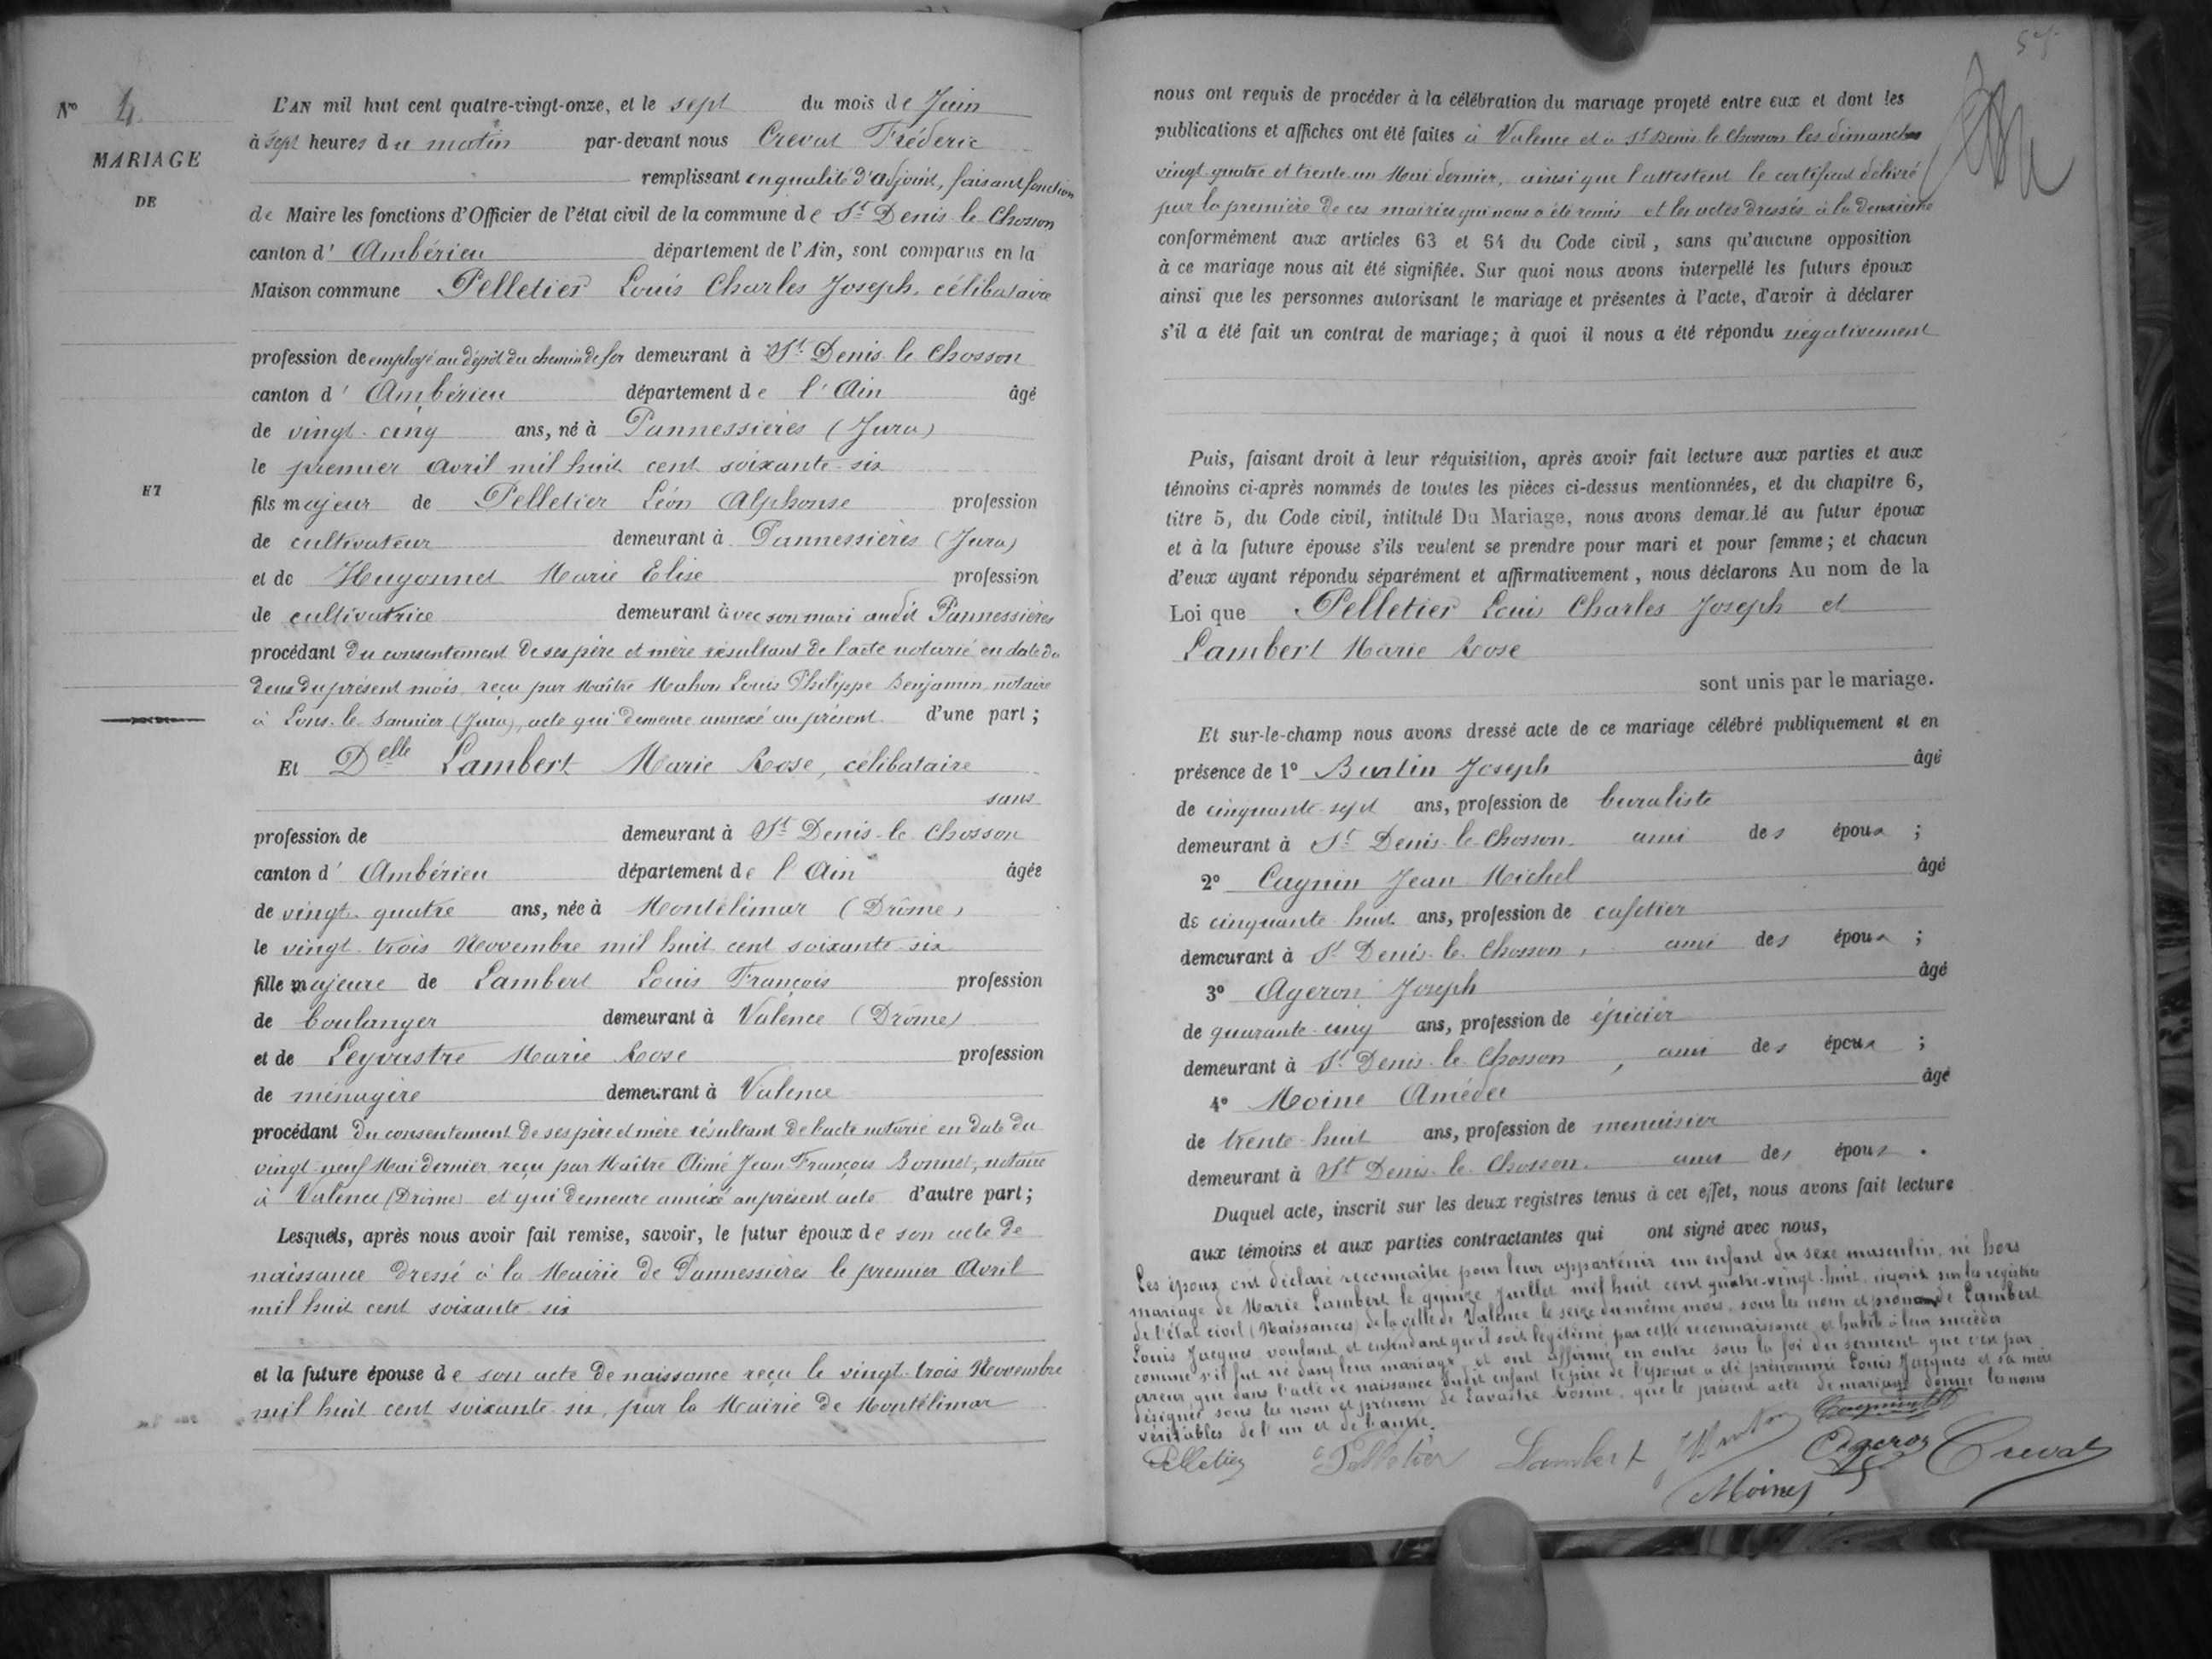 N° 4.
MARIAGE
DE
ET
L'AN mil huit cent quatre-vingt-onze, et le sept du mois de Juin
à sept heures du matin par-devant nous Crevat Fréderic
remplissant en qualité d'adjoint, faisant fonction
de Maire les fonctions d'Officier de l'état civil de la commune de St Denis le Chosson
canton d' Ambérieu département de l'Ain, sont comparus en la
Maison commune Pelletier Louis Charles Joseph, célibataire
profession de employé au dépôt du chemin de fer demeurant à St Denis le Chosson
canton d' Ambérieu département de l'Ain âgé
de vingt-cinq ans, né à Pannessières (Jura)
le premier avril mil huit cent soixante-six
fils majeur de Pelletier Léon Alphonse profession
de cultivateur demeurant à Pannessières (Jura)
et de Hugonnet Marie Elise profession
de cultivatrice demeurant avec son mari audit Pannessières
procédant du consentement de ses père et mère résultant de l'acte notarié en date du
deux du présent mois, reçu par Maître Mahon Louis Philippe Benjamin, notaire
à Lons-le-Saunier (Jura), acte qui demeure annexé au présent d'une part;
Et Delle Lambert Marie Rose, célibataire
sans
profession de demeurant à St Denis-le-Chosson
canton d' Ambérieu département de l'Ain âgée
de vingt-quatre ans, née à Montélimar (Drôme)
le vingt-trois Novembre mil huit cent soixante-six
fille majeure de Lambert Louis François profession
de boulanger demeurant à Valence (Drôme)
et de Leyvastre Marie Rose profession
de ménagère demeurant à Valence
procédant du consentement de ses père et mère résultant de l'acte notarié en date du
vingt-neuf Mai dernier reçu par Maître Aimé Jean François Bonnet, notaire
à Valence (Drôme) et qui demeure annexé au présent acte d'autre part;
Lesquels, après nous avoir fait remise, savoir, le futur époux de son acte de
naissance dressé à la Mairie de Pannessières le premier Avril
mil huit cent soixante-six
et la future épouse de son acte de naissance reçu le vingt-trois Novembre
mil huit cent soixante-six, par la Mairie de Montélimar
nous ont requis de procéder à la célébration du mariage projeté entre eux et dont les
publications et affiches ont été faites à Valence et à St Denis le Chosson les dimanches
vingt-quatre et trente-un Mai dernier, ainsi que l'attestent le certificat délivré
par la première de ces mairies qui nous a été remis et les actes dressés à la deuxième
conformément aux articles 63 et 64 du Code civil, sans qu'aucune opposition
à ce mariage nous ait été signifiée. Sur quoi nous avons interpellé les futurs époux
ainsi que les personnes autorisant le mariage et présentes à l'acte, d'avoir à déclarer
s'il a été fait un contrat de mariage; à quoi il nous a été répondu négativement
Puis, faisant droit à leur réquisition, après avoir fait lecture aux parties et aux
témoins ci-après nommés de toutes les pièces ci-dessus mentionnées, et du chapitre 6,
titre 5, du Code civil, intitulé Du Mariage, nous avons demandé au futur époux
et à la future épouse s'ils veulent se prendre pour mari et pour femme; et chacun
d'eux ayant répondu séparément et affirmativement, nous déclarons Au nom de la
Loi que Pelletier Louis Charles Joseph et
Lambert Marie Rose
sont unis par le mariage.
Et sur-le-champ nous avons dressé acte de ce mariage célébré publiquement et en
présence de 1° Burtin Joseph âgé
de cinquante-sept ans, profession de buraliste
demeurant à St Denis-le-Chosson ami des époux ;
2° Cagnin Jean Michel âgé
de cinquante-huit ans, profession de cafetier
demeurant à St Denis-le-Chosson, ami des époux ;
3° Ageron Joseph âgé
de quarante-cinq ans, profession de épicier
demeurant à St Denis-le-Chosson, ami des époux ;
4° Moine Amédée âgé
de trente-huit ans, profession de menuisier
demeurant à St Denis-le-Chosson. ami des époux .
Duquel acte, inscrit sur les deux registres tenus à cet effet, nous avons fait lecture
aux témoins et aux parties contractantes qui ont signé avec nous,
Les époux ont déclaré reconnaître pour leur appartenir un enfant du sexe masculin, né hors
mariage de Marie Lambert le quinze Juillet mil huit cent quatre-vingt-huit, inscrit sur les registres
de l'état civil (Naissances) de la ville de Valence le seize du même mois, sous les nom et prénoms de Lambert
Louis Jacques voulant et entendant qu'il soit légitimé par cette reconnaissance et habile à leur succéder
comme s'il fut né dans leur mariage, et ont affirmé en outre sous la foi du serment que c'est par
erreur que dans l'acte de naissance dudit enfant le père de l'épouse a été prénommé Louis Jacques et sa mère
désignée sous les nom et prénom de Lavastre Rosine, que le présent acte de mariage donne les noms
véritables de l'un et de l'autre.
Pelletier Pelletier Lambert Ageron Crevat
Moine